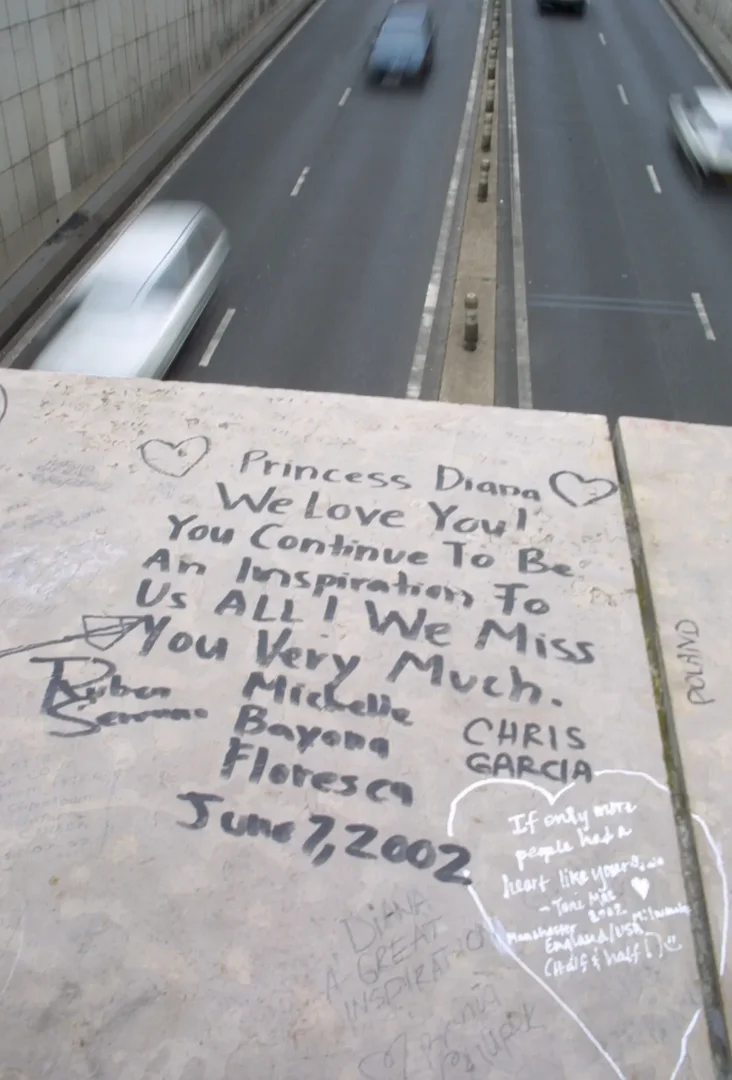 Princess Diana
We Love You!
You Continue To Be
An Inspiration To
Us ALL! We Miss
You Very Much.
Ruben
Serrano
Michelle
Bayona
Floresca
CHRIS
GARCIA
June 7, 2002
POLAND
If only more
people had a
heart like yours
- Toni Mac
2002
Manchester
England/USA
(Half & half!)
DIANA
A GREAT
INSPIRATION